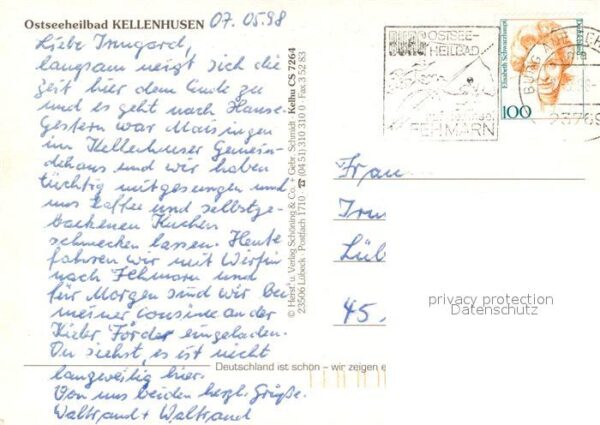 Ostseeheilbad KELLENHUSEN
07.05.98
Liebe Irmgard,
langsam neigt sich die
Zeit hier dem Ende zu
und es geht nach Hause.
Gestern war Maisingen
im Kellenhuser Gemein-
dehaus und wir haben
tüchtig mitgesungen und
uns Kaffee und selbstge-
backenen Kuchen
schmecken lassen. Heute
fahren wir mit Wirtin
nach Fehmarn und
für Morgen sind wir bei
meiner Cousine an der
Kieler Förder eingeladen.
Du siehst, es ist nicht
langweilig hier.
Von uns beiden herzl. Grüße.
Waltraud + Waltraud
© Herst. u. Verlag Schöning & Co. + Gebr. Schmidt · Kelhu CS 7264
23506 Lübeck · Postfach 1710 · ☎ (04 51) 310 310 0 · Fax 3 52 83
Deutschland ist schön – wir zeigen e
BURG
OSTSEE-
HEILBAD
FEHMARN
Elisabeth Schwarzhaupt
100
23769
Frau
Irm
Lüb
45.
privacy protection
Datenschutz